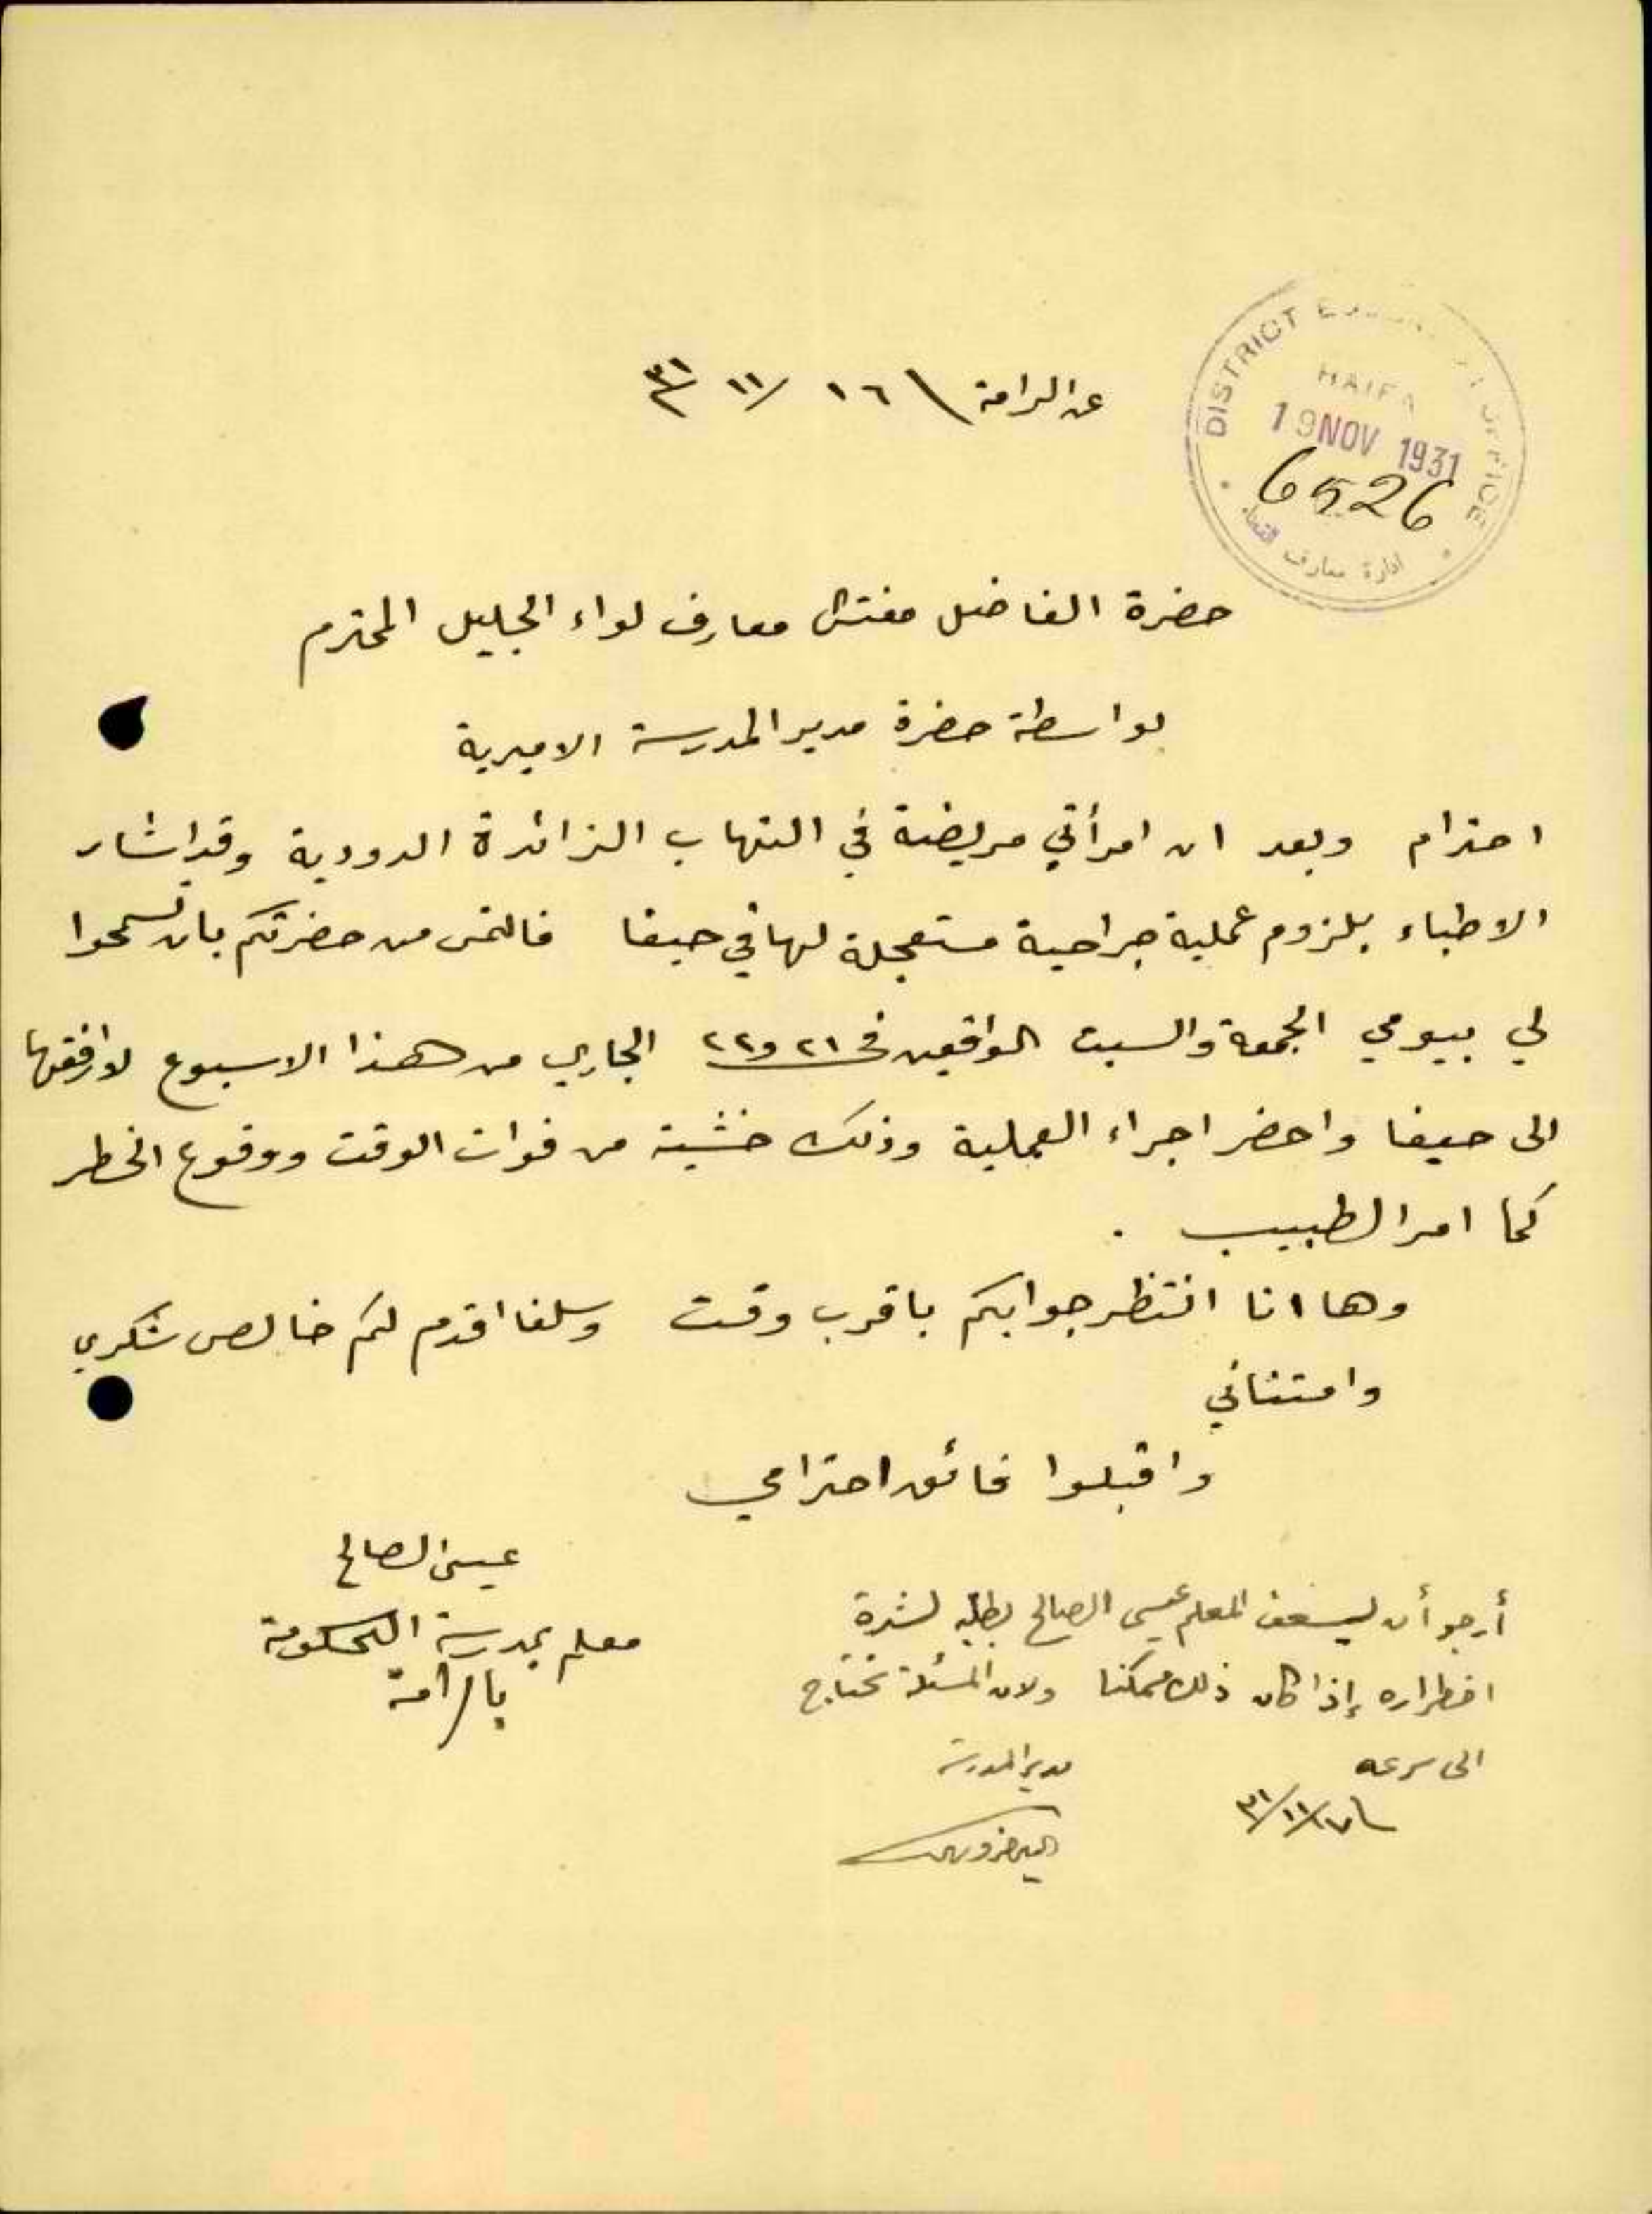 عن الرامة ١٦ / ١١ / ٣١
DISTRICT OFFICE
HAIFA
19 NOV 1931
6526
ادارة معارف
حضرة الفاضل مفتش معارف لواء الجليل المحترم
بواسطة حضرة مدير المدرسة الاميرية
احترام وبعد ان امرأتي مريضة في التهاب الزائدة الدودية وقد اشار
الاطباء بلزوم عملية جراحية مستعجلة لها في حيفا فالتمس من حضرتكم بان تسمحوا
لي بيومي الجمعة والسبت الواقعين في ٢١ و ٢٢ الجاري من هذا الاسبوع لارافقها
الى حيفا واحضر اجراء العملية وذلك خشية من فوات الوقت ووقوع الخطر
كما امر الطبيب .
وها انا انتظر جوابكم باقرب وقت وسلفا اقدم لكم خالص شكري
وامتناني
واقبلوا فائق احترامي
عيسى الصالح
معلم بمدرسة الحكومة
بالرامة
أرجو أن يسعف المعلم عيسى الصالح بطلبه لشدة
اضطراره إذا كان ذلك ممكنا ولان المسئلة تحتاج
الى سرعه
مدير المدرسة
١٧/١١/٣١